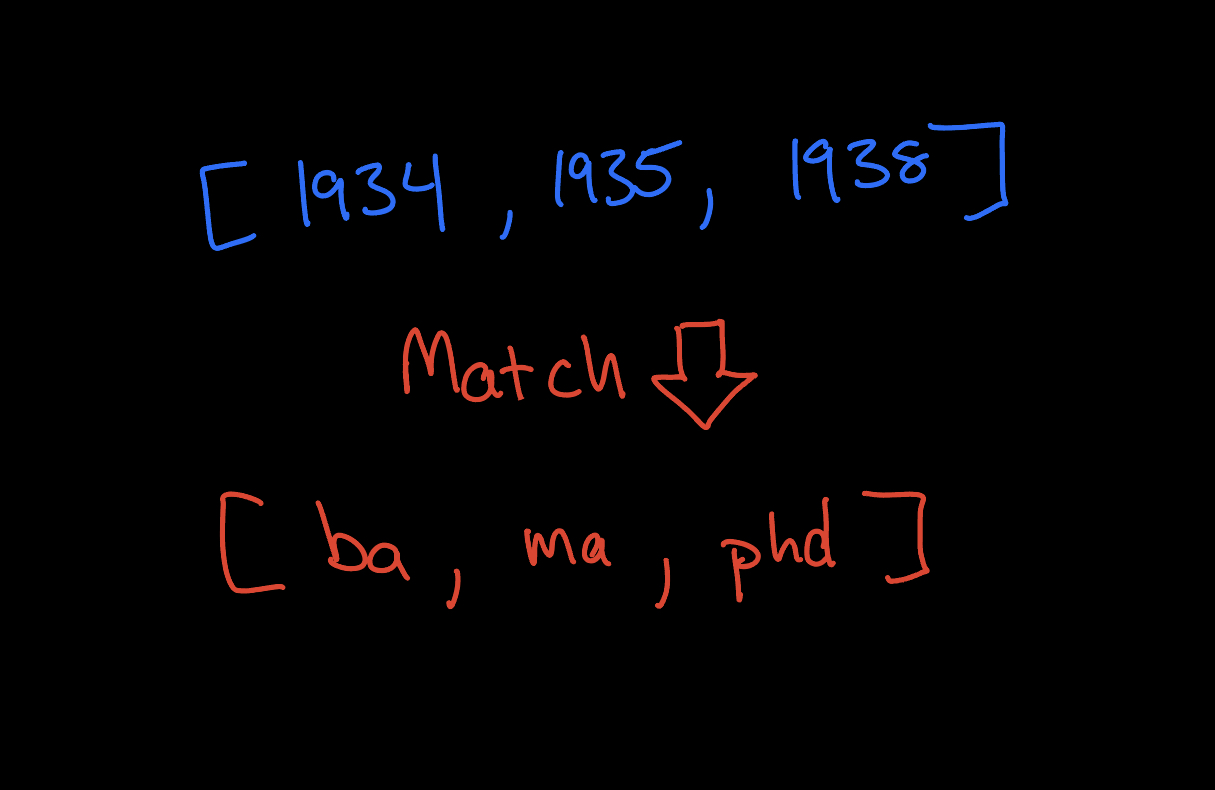 [ 1934 , 1935, 1938 ]
Match
[ ba , ma , phd ]